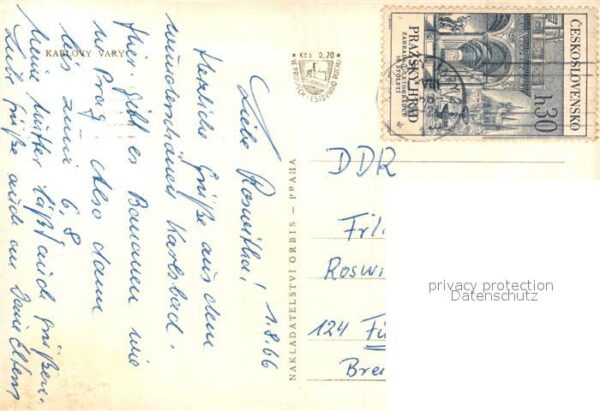 KARLOVY VARY
Kčs 0,70
1.8.66
Liebe Roswitha!
Herzliche Grüße aus dem
wunderschönen Karlsbad.
Hier gibt es Bananen wie
in Prag. Also dann
bis zum 6.8
Meine Mutter läßt auch grüßen.
Grüße auch an Deine Eltern
NAKLADATELSTVÍ ORBIS – PRAHA
ČESKOSLOVENSKO
PRAŽSKÝ HRAD
h 30
DDR
Frl.
Roswi
124 Fü
Bre
privacy protection
Datenschutz